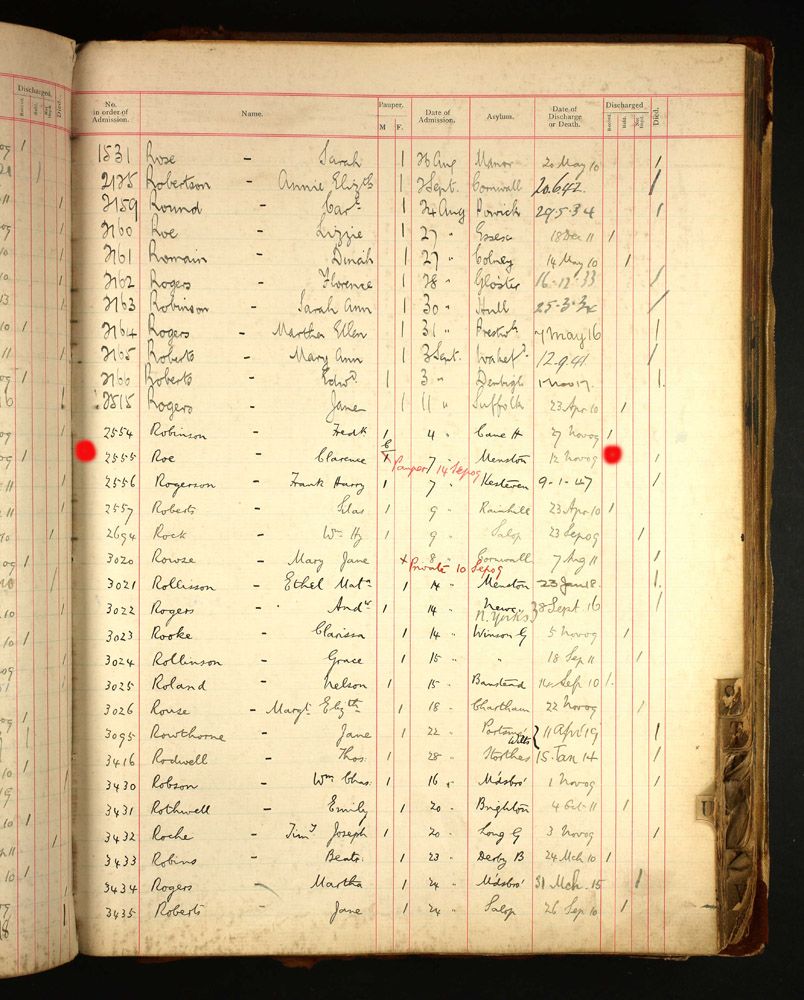 Discharged.
Died.
No. in order of Admission. Name. Pauper. M F. Date of Admission. Asylum. Date of Discharge or Death. Discharged Recov'd. Died.
1531 Rose - Sarah 1 26 Aug Manor 20 May 10 1
2125 Robertson - Annie Elizth 1 2 Sept. Cornwall 20.6.42. 1
2159 Round - Car. 1 24 Aug Powick 29.5.34 1
2160 Roe - Lizzie 1 27 " Essex 18 Dec 11 1
2161 Romain - Dinah 1 27 " Colney 14 May 10 1
2162 Rogers - Florence 1 28 " Gloster 16.12.33 1
2163 Robinson - Sarah Ann 1 30 " Hull 25.3.32 1
2164 Rogers - Martha Ellen 1 31 " Prestwh. 7 May 16 1
2165 Roberts - Mary Ann 1 2 Sept. Wakefd. 12.9.41 1
2166 Roberts - Edwd. 1 3 " Denbigh 1 Nov 17. 1.
2515 Rogers - Jane 1 11 " Suffolk 23 Apr 10 1
2554 Robinson - Fredk 1 4 " Cane H 27 Nov 09 1
2555 Roe - Clarence X 7 " Menston 12 Nov 09 1
Pauper 14 Sep 09
2556 Rogerson - Frank Harry 1 7 " Kesteven 9.1.47 1
2557 Roberts - Silas 1 9 " Rainhill 23 Apr 10 1
2694 Rock - Wm Hy 1 9 " Salop 23 Sep 09 1
3020 Rowse - Mary Jane X 8 " Cornwall 7 Aug 11 1
Private 10 Sep 09
3021 Rollisson - Ethel Mata 1 14 " Menston 23 Jan 18. 1.
3022 Rogers - Andw 1 14 " Newc. N. Yorks } 28 Sept 16 1
3023 Rooke - Clarissa 1 14 " Winson G 5 Nov 09 1
3024 Rollinson - Grace 1 15 " " 18 Sep 11 1
3025 Roland - Nelson 1 15 " Banstead 14 Sep 10 1.
3026 Rouse - Margt Elizth 1 18 " Chartham 22 Nov 09 1
3095 Rowthorne - Jane 1 22 " Portsmo Wilts } 11 Apr 19 1
3416 Rodwell - Thos. 1 28 " Storthes 15 Jan 14 1
3430 Robson - Wm Chas. 1 16 " M'dsbro' 1 Nov 09 1
3431 Rothwell - Emily 1 20 " Brighton 4 Oct 11 1
3432 Roche - Timy Joseph 1 20 " Long G 3 Nov 09 1
3433 Robins - Beatr. 1 23 " Derby B 24 Mch 10 1
3434 Rogers Martha 1 24 " M'dsbro' 31 Mch. 15 1
3435 Roberts - Jane 1 24 " Salop 26 Sep 10 1
U